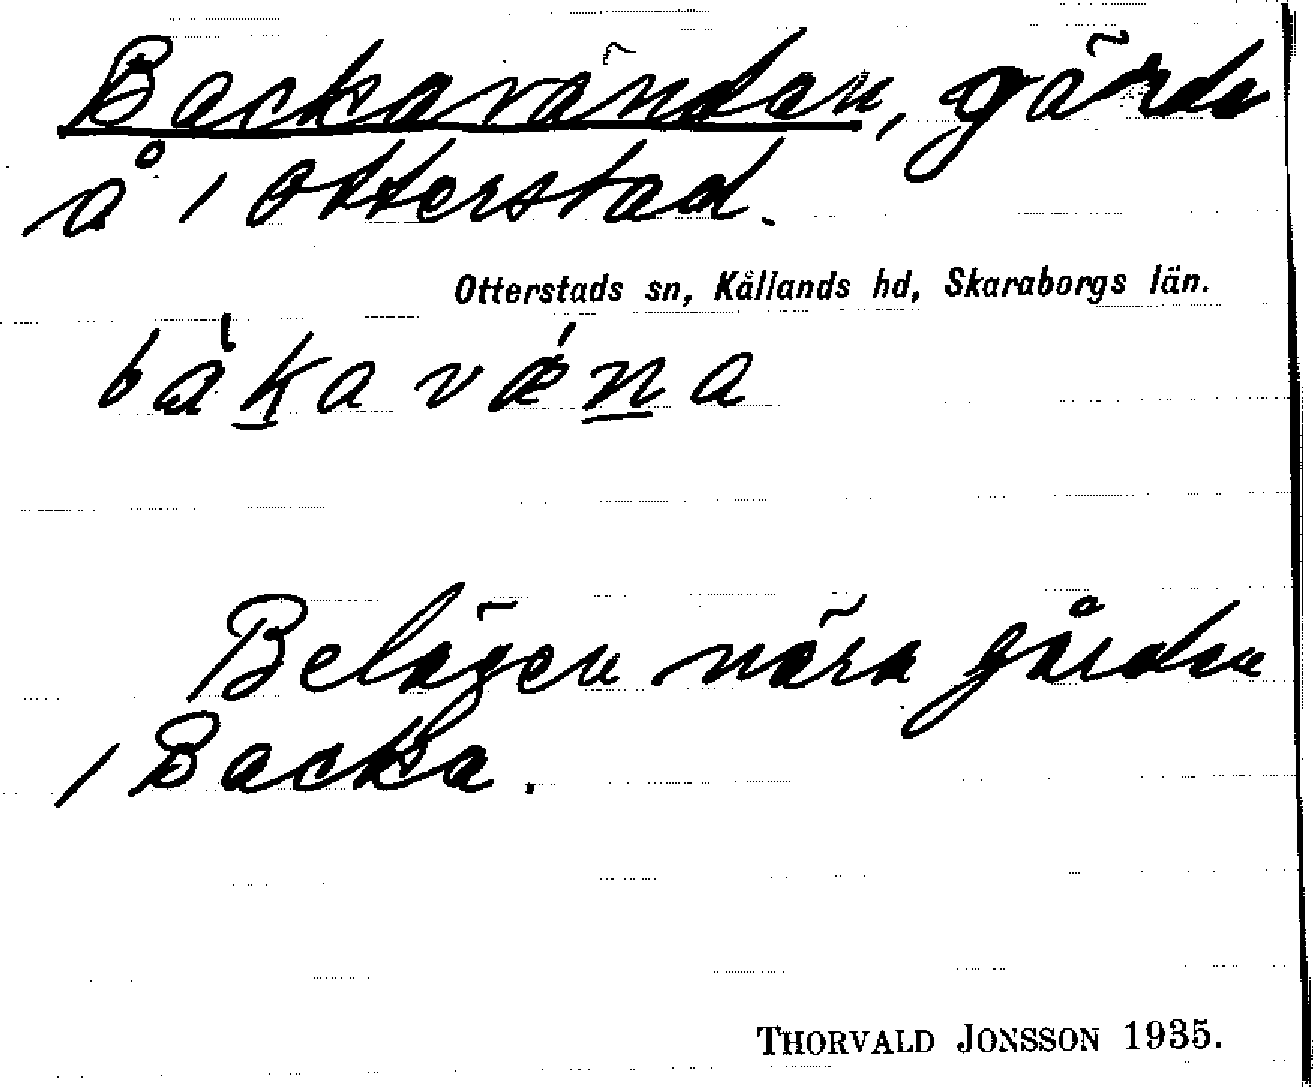 Backavänden, gärde
å 1 Otterstad.
Otterstads sn, Kållands hd, Skaraborgs län.
bàkavǽna
Belägen nära gården
1 Backa.
THORVALD JONSSON 1935.